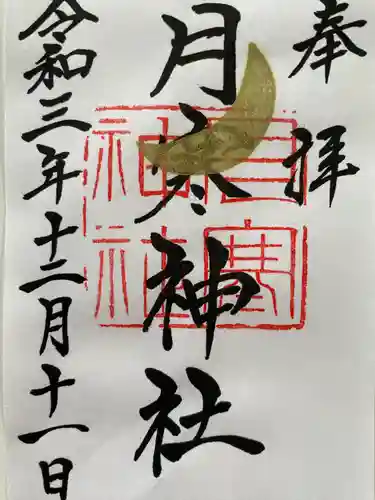 奉拝
月寒神社
令和三年十二月十一日
月寒
神社